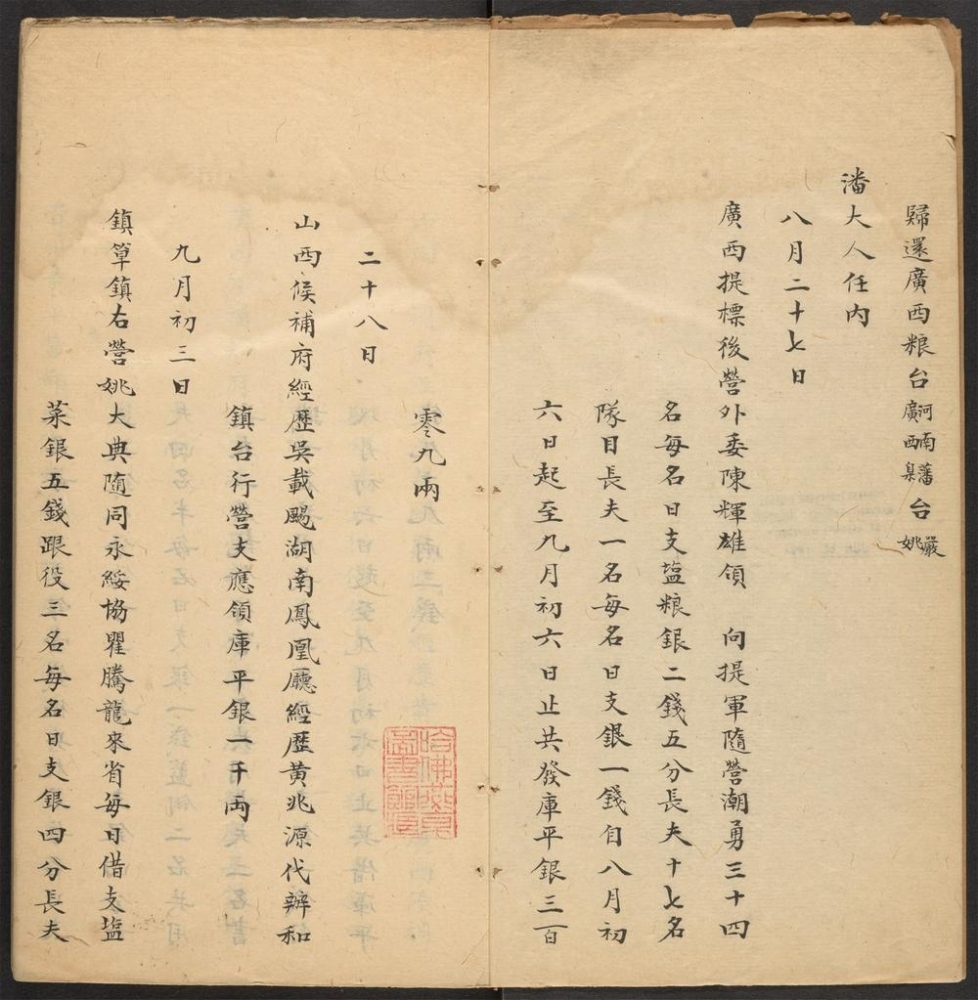 歸還廣西粮台河南藩廣西臬台嚴姚
潘大人任内
八月二十七日
廣西提標後營外委陳輝雄領　向提軍隨營潮勇三十四
名每名日支塩粮銀二錢五分長夫十七名
隊目長夫一名每名日支銀一錢自八月初
六日起至九月初六日止共發庫平銀三百
零九兩
二十八日
山西候補府經歷吳載颺湖南鳳凰廳經歷黄兆源代辦和
鎮台行營支應領庫平銀一千両
九月初三日
鎮筸鎮右營姚大典隨同永綏協瞿騰龍來省每日借支塩
菜銀五錢跟役三名每名日支銀四分長夫